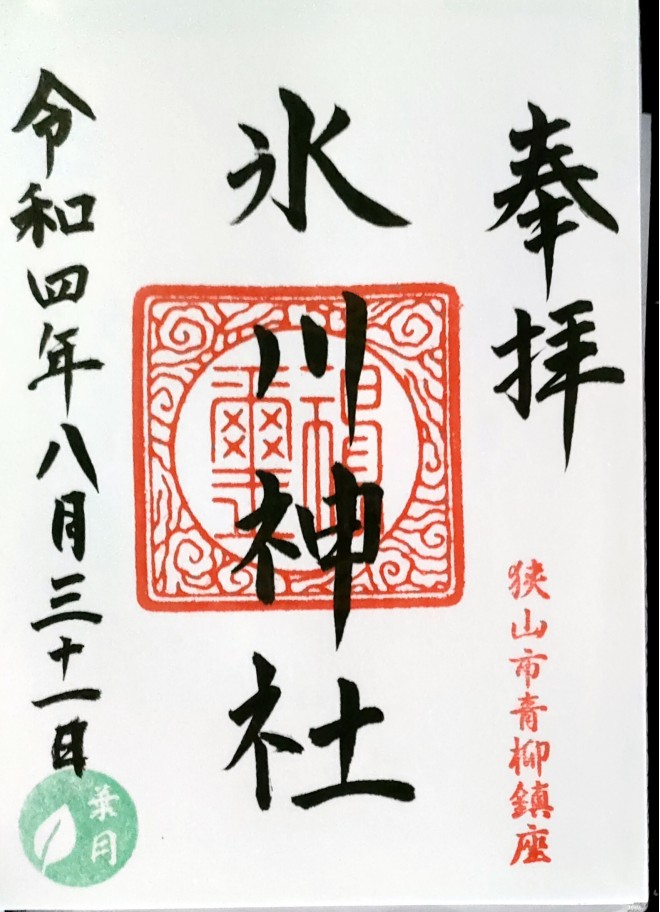 奉拝
狭山市青柳鎮座
氷川神社
神璽
令和四年八月三十一日
葉月